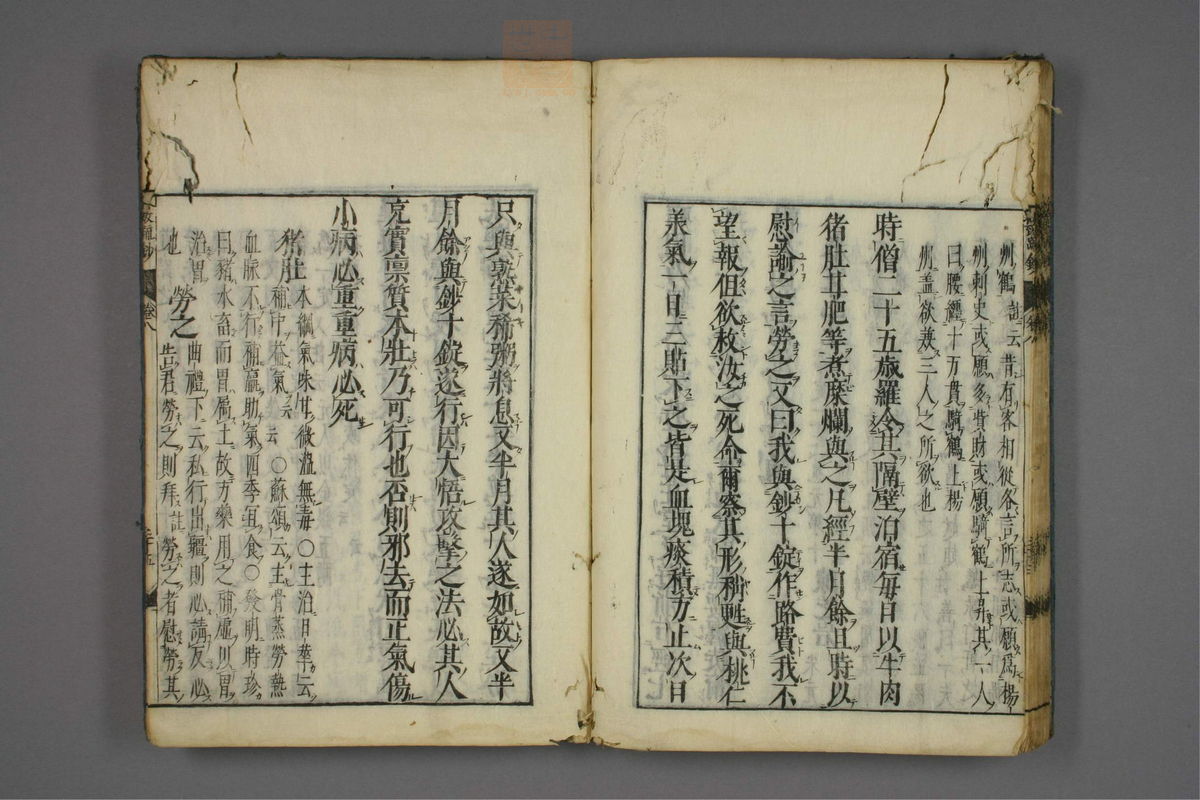 州鶴註云昔有客相從各言所志或願爲楊
州刺史或願多貲財或願騎鶴上昇其一人
曰腰纏十万貫騎鶴上楊
州盖欲兼三人之所欲也
時僧二十五歳羅令其隔壁泊宿毎日以牛肉
猪肚甘肥等煮糜爛與之凡經半月餘且時以
慰諭之言勞之又曰我與鈔十錠作路費我不
望報但欲救汝之死命爾察其形稍甦與桃仁
義氣一日三貼下之皆是血塊痰積方止次日
只與熟菜稀粥將息又半月其人遂如故又半
月餘與鈔十錠遂行因大悟攻擊之法必其人
充實禀質本壯乃可行也否則邪去而正氣傷
小病必重重病必死
猪肚 本綱氣味甘微溫無毒○主治日華云
補中益氣云云○蘇頌云主骨蒸勞熱
血脉不行補羸助氣四季宜食○發明時珍
曰猪水畜而胃屬土故方藥用之補虛以胃
治胃
也 勞之 曲禮下云私行出疆則必請反必
告君勞之則拜註勞之者慰勞其